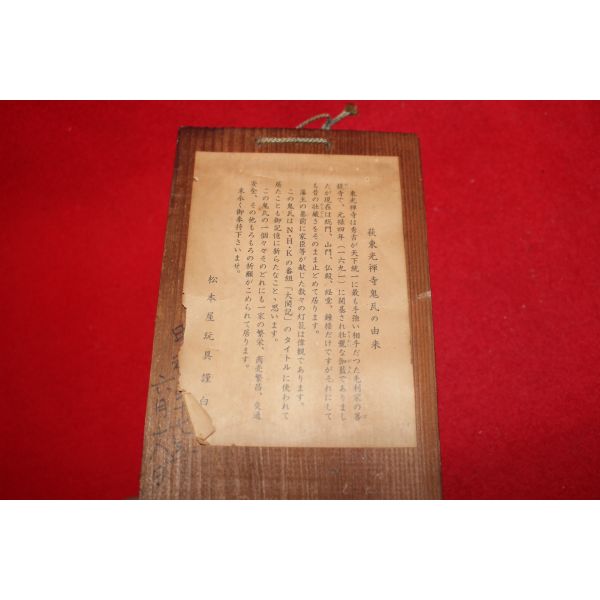 萩東光禅寺鬼瓦の由来
東光禅寺は秀吉が天下統一に最も手強い相手だつた毛利家の菩
提寺で、元禄四年(一六九一)に開基され壮麗な伽藍でありまし
たが現在は総門、山門、仏殿、経堂、鐘楼だけですがそれにして
も昔の壮厳さをそのまま止どめて居ります。
藩主の墓前に家臣等が献じた数々の灯籠は偉観であります。
この鬼瓦はN・H・Kの番組「大閤記」のタイトルに使われて
居たことも御記憶に新らたなことゝ思います。
この鬼瓦の一個々々そのどれにも一家の繁栄、商売繁昌、交通
安全、その他もろもろの祈願がこめられて居ります。
末永く御奉持下さいませ。
松本屋玩具謹白